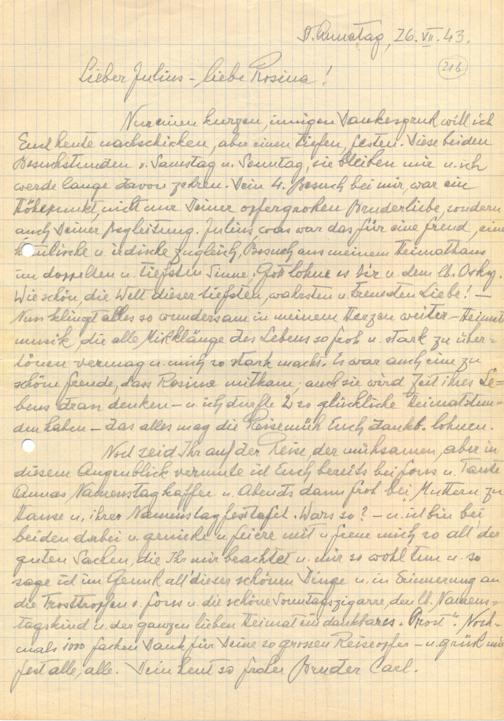 St. Annatag, 26. VII. 43.
216
Lieber Julius - liebe Rosina!
Nur einen kurzen, innigen Dankesgruß will ich
Euch heute nachschicken, aber einen tiefen, festen. Diese beiden
Besuchstunden v. Samstag u. Sonntag, sie bleiben mir u. ich
werde lange davon zehren. Dein 4. Besuch bei mir, war ein
Höhepunkt, nicht nur Deiner opfergroßen Bruderliebe, sondern
auch Deiner Begleitung. Julius, was war das für eine Freud, eine
himmlische u. irdische zugleich, Besuch aus meinem Heimathaus
im doppelten u. tiefsten Sinne. Gott lohne es Dir u. dem lb.
Wie schön, die Welt dieser tiefsten, wahrsten u. treuesten Liebe! -
Nun klingt alles so wundersam in meinem Herzen weiter - Heimat-
musik, die alle Mißklänge des Lebens so froh u. stark zu über-
tönen vermag u. mich so stark macht. Es war auch eine zu
schöne Freude, dass Rosina mitkam; auch sie wird Zeit ihres Le-
bens dran denken - u. ich durfte 2 so glückliche Heimatstun-
den haben - das alles mag die Reisemüh Euch dankb. lohnen.
Noch seid Ihr auf der Reise, der mühsamen, aber in
diesem Augenblick vermute ich Euch bereits bei u. Tante
Annas Namenstagkaffee u. Abends dann froh bei Muttern zu
Hause u. ihrer Namenstagfesttafel. Wars so? - u. ich bin bei
beiden dabei u. genieße u. feiere mit u. freue mich so all der
guten Sachen, die Ihr mir beachtet u. mir so wohl tun u. so
sage ich im Genuß all dieser schönen Dinge u. in Erinnerung an
die Trosttropfen v. u. die schöne Sonntagszigarre, dem lb. Namens-
tagskind u. der ganzen lieben Heimat ein dankbares "Prost". Noch-
mals 1000 fachen Dank für Deine so grossen Reiseopfer - u. grüßt mir
fest alle, alle. Dein heut so froher Bruder Carl.